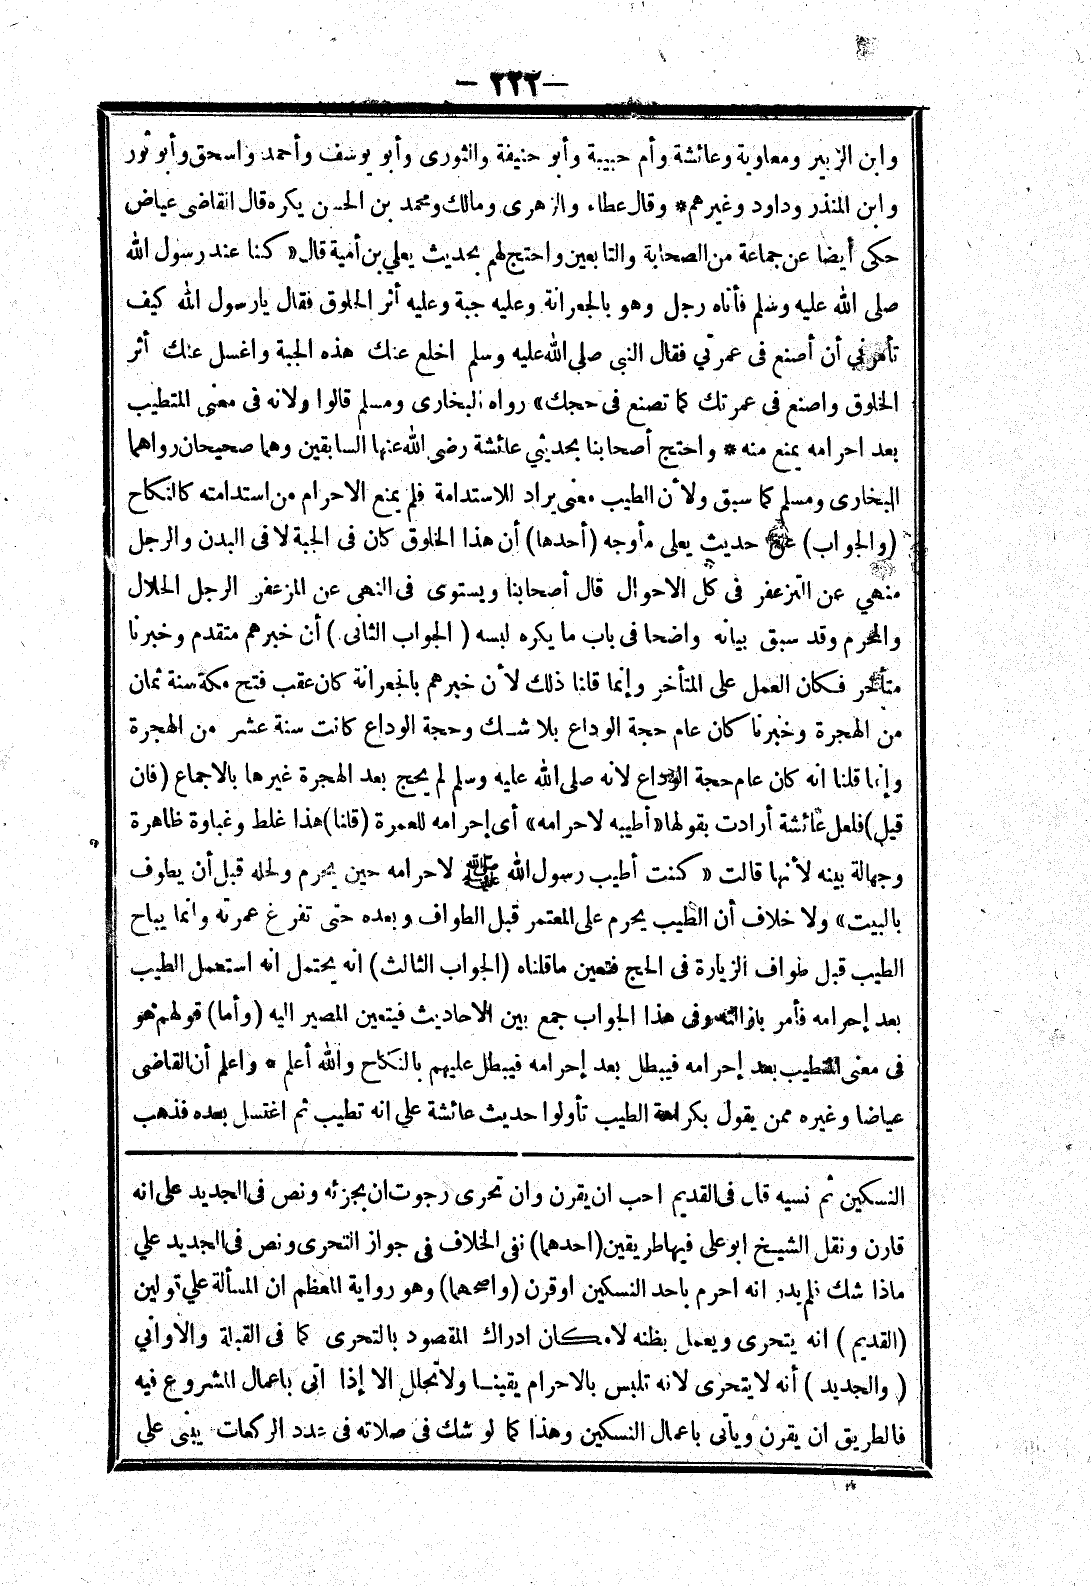 — ٢٢٢ —
وابن الزبير ومعاوية وعائشة وأم حبيبة وأبو حنيفة والثورى وأبو يوسف وأحمد واسحق وأبو ثور
وابن المنذر وداود وغيرهم* وقال عطاء والزهرى ومالك ومحمد بن الحسن يكره قال القاضى عياض
حكى أيضا عن جماعة من الصحابة والتابعين واحتج لهم بحديث يعلي بن أمية قال « كنا عند رسول الله
صلى الله عليه وسلم فأتاه رجل وهو بالجعرانة وعليه جبة وعليه أثر الخلوق فقال يارسول الله كيف
تأمرني أن أصنع فى عمرتي فقال النبى صلى الله عليه وسلم اخلع عنك هذه الجبة واغسل عنك أثر
الخلوق واصنع فى عمرتك كما تصنع فى حجك» رواه البخارى ومسلم قالوا ولانه فى معنى المتطيب
بعد احرامه يمنع منه * واحتج أصحابنا بحديثي عائشة رضى الله عنها السابقين وهما صحيحان رواهما
البخارى ومسلم كما سبق ولأن الطيب معنى يراد للاستدامة فلم يمنع الاحرام من استدامته كالنكاح
(والجواب) عن حديث يعلى من أوجه (أحدها) أن هذا الخلوق كان فى الجبة لا فى البدن والرجل
منهي عن التزعفر فى كل الاحوال قال أصحابنا ويستوى فى النهى عن المزعفر الرجل الحلال
والمحرم وقد سبق بيانه واضحا فى باب ما يكره لبسه ( الجواب الثانى ) أن خبرهم متقدم وخبرنا
متأخر فكان العمل على المتأخر وإنما قلنا ذلك لأن خبرهم بالجعرانة كان عقب فتح مكة سنة ثمان
من الهجرة وخبرنا كان عام حجة الوداع بلا شك وحجة الوداع كانت سنة عشر من الهجرة
وإنما قلنا انه كان عام حجة الوداع لانه صلى الله عليه وسلم لم يحج بعد الهجرة غيرها بالاجماع (فان
قيل) فلعل عائشة أرادت بقولها «أطيبه لاحرامه» أى إحرامه للعمرة (قلنا) هذا غلط وغباوة ظاهرة
وجهالة بينه لأنها قالت « كنت أطيب رسول الله ﷺ لاحرامه حين يحرم ولحله قبل أن يطوف
بالبيت» ولا خلاف أن الطيب يحرم على المعتمر قبل الطواف وبعده حتى تفرغ عمرته وانما يباح
الطيب قبل طواف الزيارة فى الحج فتعين ماقلناه (الجواب الثالث) انه يحتمل انه استعمل الطيب
بعد إحرامه فأمر بازالته وفى هذا الجواب جمع بين الاحاديث فيتعين المصير اليه (وأما) قولهم هو
فى معنى المتطيب بعد إحرامه فيبطل بعد إحرامه فيبطل عليهم بالنكاح والله أعلم * واعلم أن القاضى
عياضا وغيره ممن يقول بكراهة الطيب تأولوا حديث عائشة علي انه تطيب ثم اغتسل بعده فذهب
النسكين ثم نسيه قال فى القديم احب ان يقرن وان تحرى رجوت ان يجزئه ونص فى الجديد على انه
قارن ونقل الشيخ ابو على فيها طريقين (احدهما) نفى الخلاف فى جواز التحرى ونص فى الجديد علي
ماذا شك فلم يدر انه احرم باحد النسكين او قرن (واصحهما) وهو رواية المعظم ان المسألة علي قولين
(القديم ) انه يتحرى ويعمل بظنه لامكان ادراك المقصود بالتحرى كما فى القبلة والاوانى
( والجديد ) أنه لا يتحرى لانه تلبس بالاحرام يقينا ولا تحلل الا إذا اتى باعمال المشروع فيه
فالطريق ان يقرن ويأتى باعمال النسكين وهذا كما لو شك فى صلاته فى عدد الركعات يبنى علي